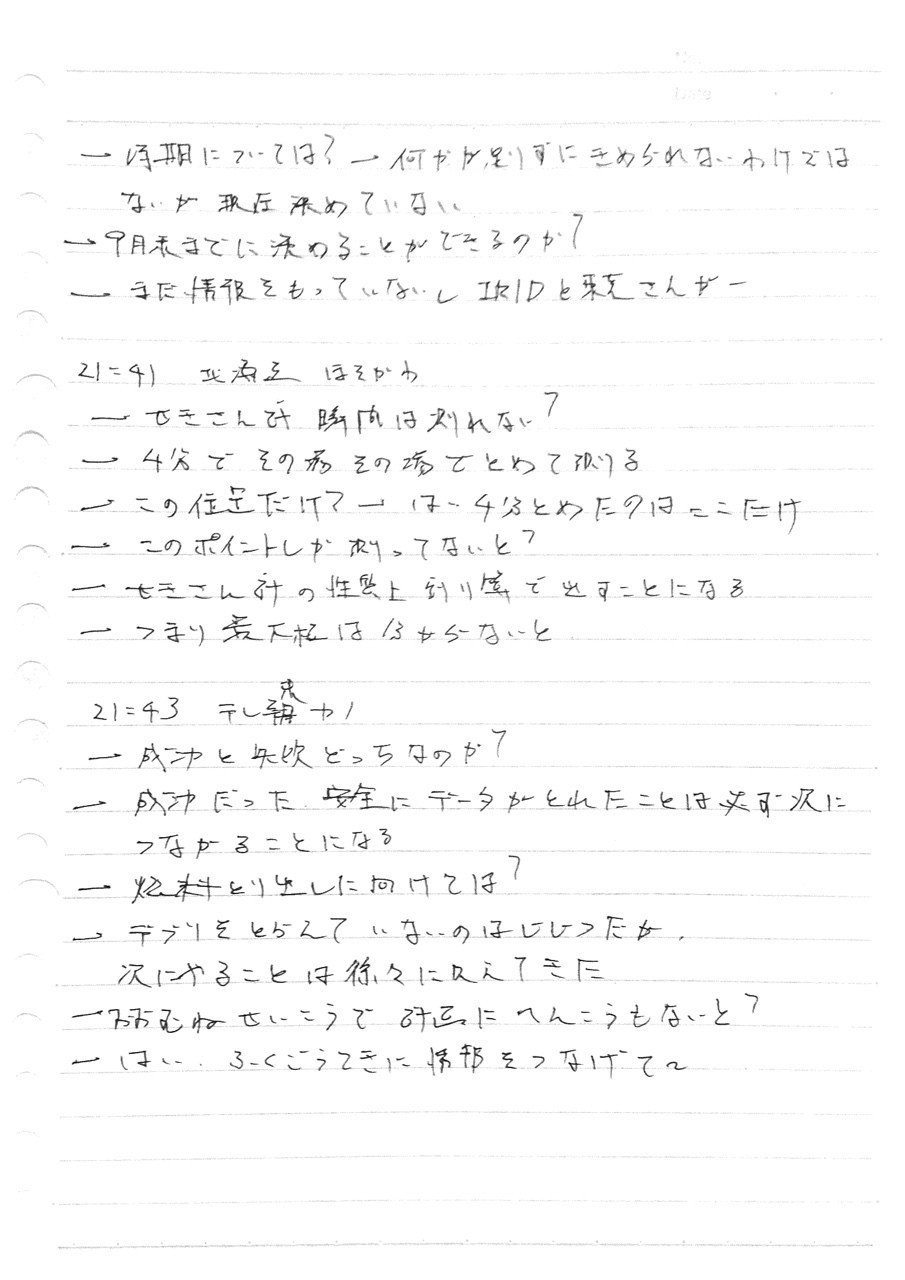 No.
Date
→ 時期については? → 何かが足りずにきめられないわけでは
ないが 現在 決めていない
→ 9月末までに決めることができるのか?
→ まだ情報をもっていないし IRIDと東電さんがー
21=41 ほそかわ
→ せきさん計 瞬間は測れない?
→ 4分で その場その場でとめて測る
→ この位置だけ? → はい 4分とめたのはここだけ
→ このポイントしか測ってないと?
→ せきさん計の性質上 割り算で出すことになる
→ つまり最大値は分からないと
21=43 テレ朝
→ 成功と失敗どっちなのか?
→ 成功だった 安全にデータがとれたことは必ず次に
つながることになる
→ 燃料とり出しに向けては?
→ デブリをとらえていないのはじじつだが、
次にやることは徐々に見えてきた
→ おおむねせいこうで 計画にへんこうもないと?
→ はい. ふくごうてきに情報をつなげて〜